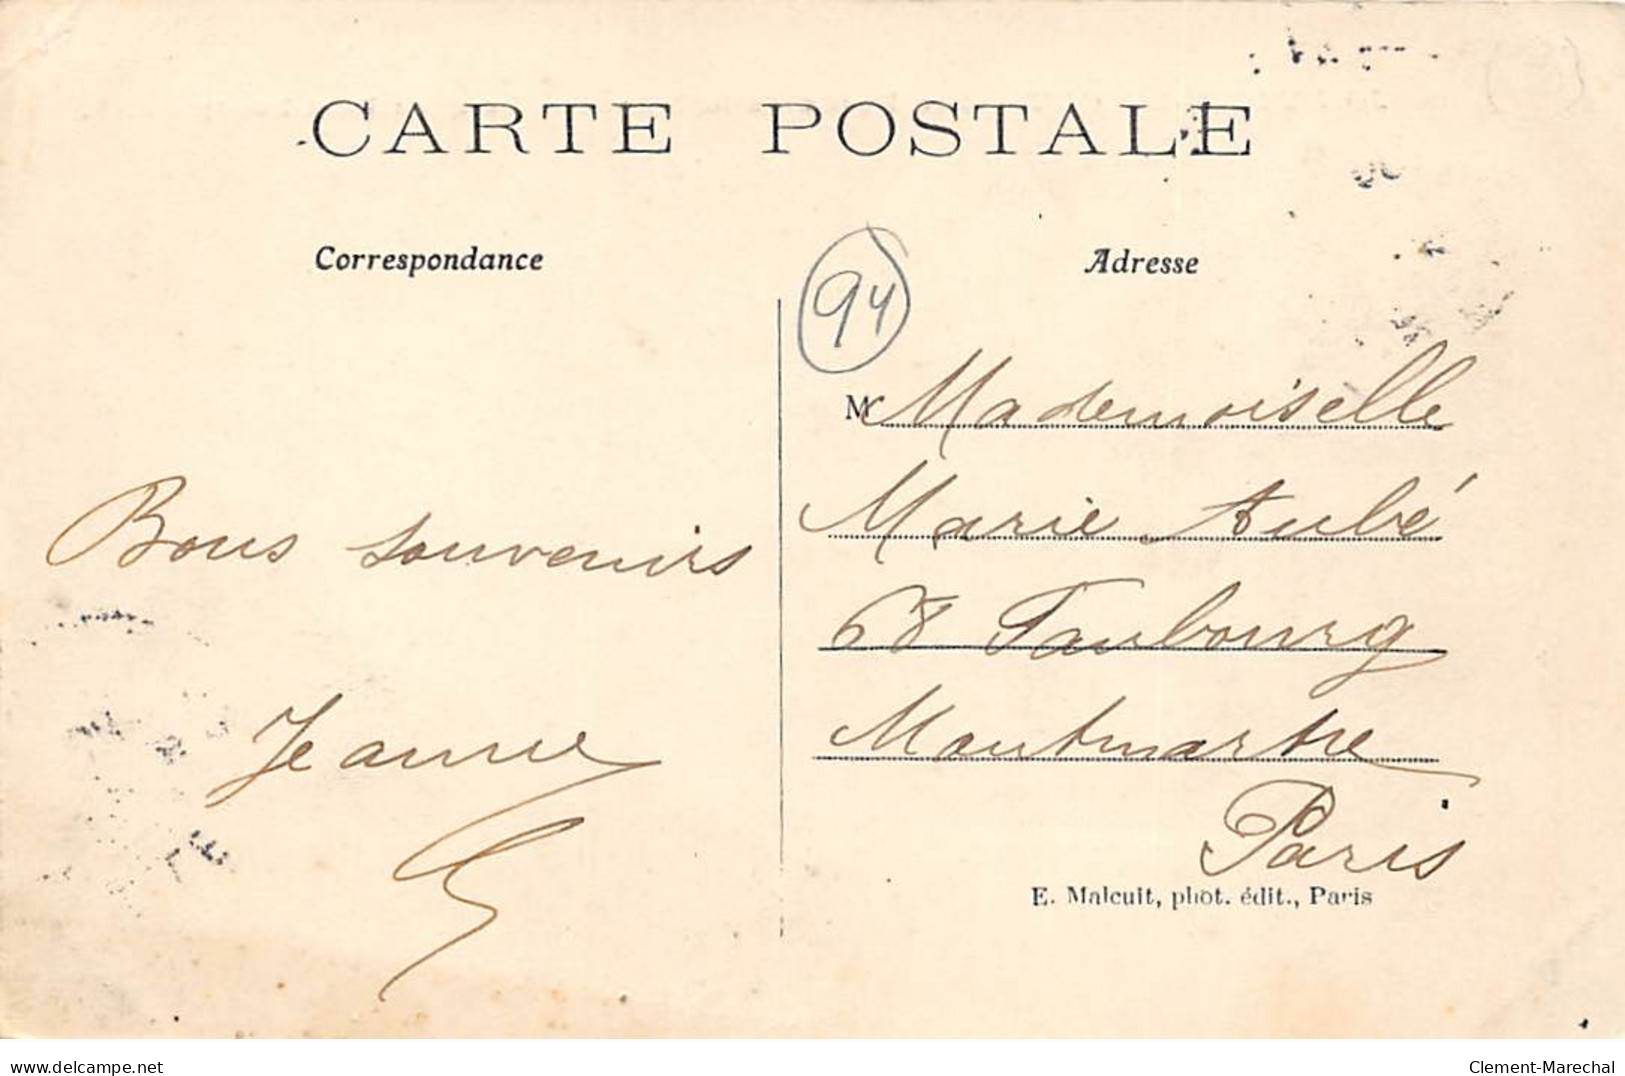 CARTE POSTALE
Correspondance
Adresse
94
Bons souvenirs
Jeanne
M Mademoiselle
Marie Aubé
68 Faubourg
Montmartre
Paris
E. Malcuit, phot. édit., Paris
delcampe.net
Clement-Marechal